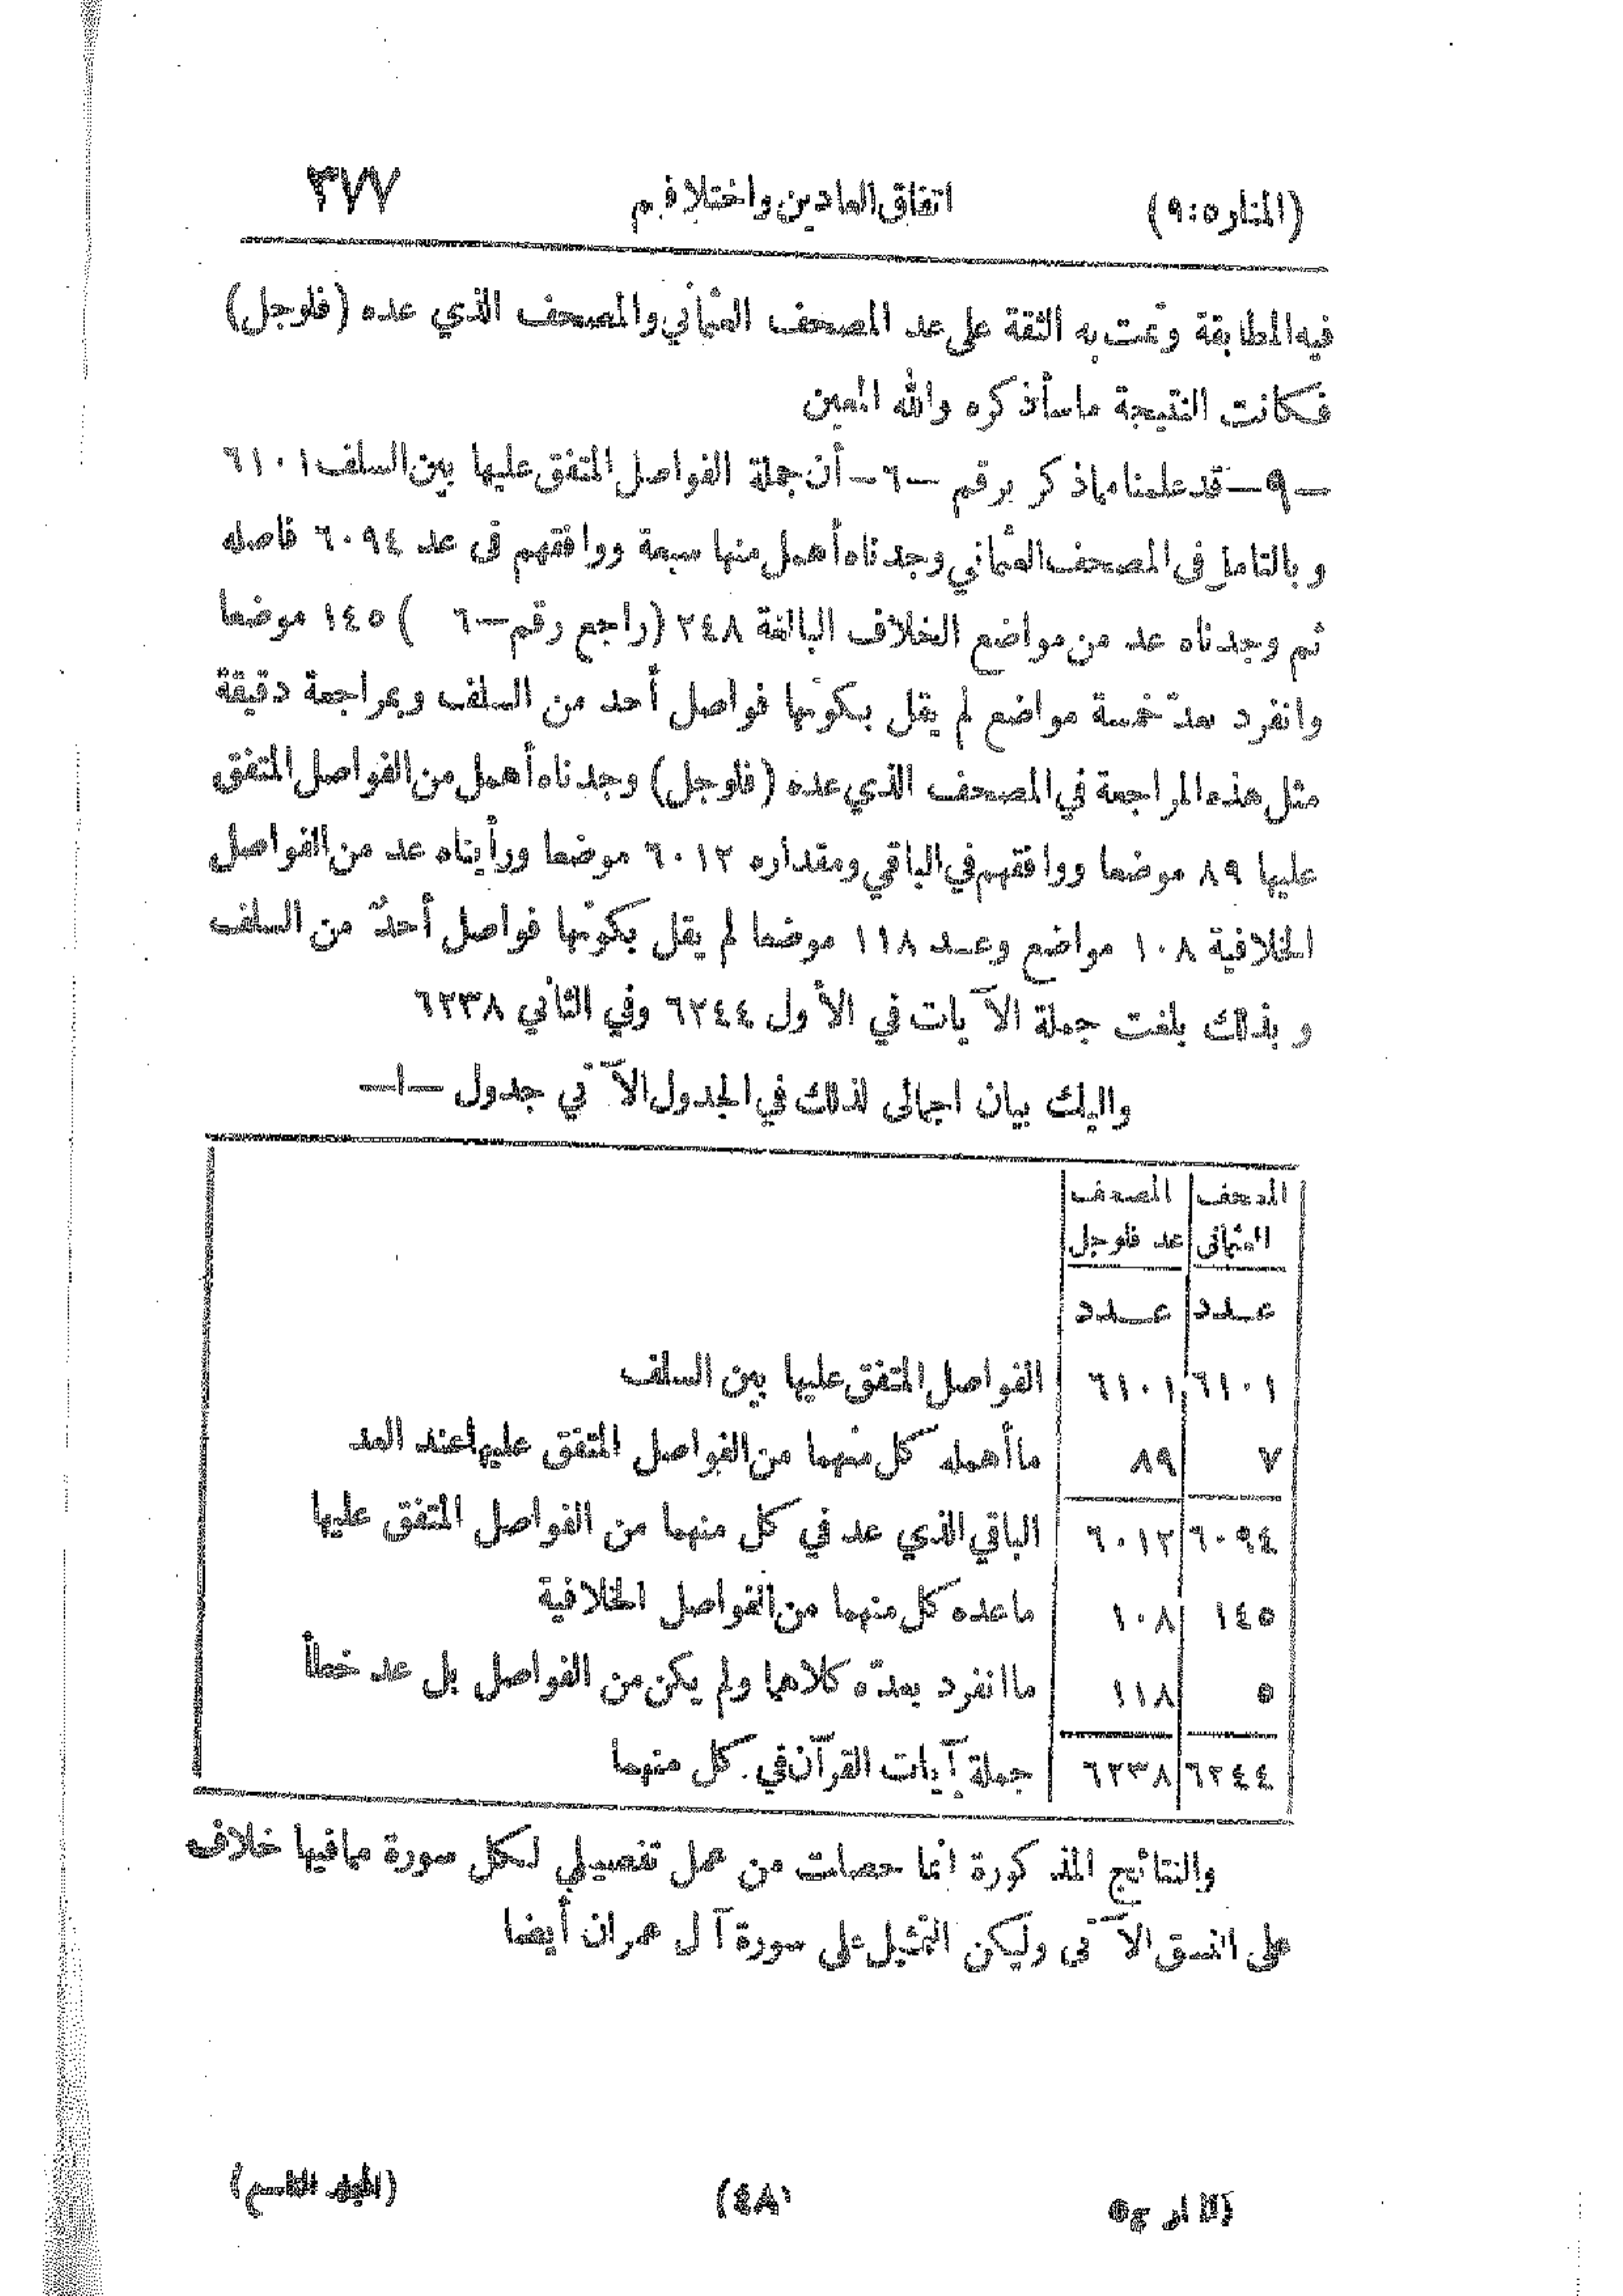 (المنار ٥ : ٩) اتفاق العادين واختلافهم ٣٧٧
فيه المطابقة وتمت به الثقة على عد المصحف العثماني والمصحف الذي عده (فلوجل)
فكانت النتيجة ما سأذكره والله المعين
— ٩ — قد علمنا مما ذكر برقم — ٦ — أن جملة الفواصل المتفق عليها بين السلف ٦١٠١
وبالتأمل في المصحف العثماني وجدناه أهمل منها سبعة ووافقهم في عد ٦٠٩٤ فاصله
ثم وجدناه عد من مواضع الخلاف البالغة ٢٤٨ (راجع رقم — ٦ ) ١٤٥ موضعا
وانفرد بعدّ خمسة مواضع لم يقل بكونها فواصل أحد من السلف وبمراجعة دقيقة
مثل هذه المراجعة في المصحف الذي عده (فلوجل) وجدناه أهمل من الفواصل المتفق
عليها ٨٩ موضعا ووافقهم في الباقي ومقداره ٦٠١٢ موضعا ورأيناه عد من الفواصل
الخلافية ١٠٨ مواضع وعد ١١٨ موضعا لم يقل بكونها فواصل أحدٌ من السلف
وبذلك بلغت جملة الآيات في الأول ٦٢٤٤ وفي الثاني ٦٢٣٨
واليك بيان اجمالى لذلك في الجدول الآتي جدول — ١ —
المصحف المصحف
العثمانى عد فلوجل
عدد عدد
٦١٠١ ٦١٠١ الفواصل المتفق عليها بين السلف
٧ ٨٩ ما أهمله كل منهما من الفواصل المتفق عليها عند العد
٦٠٩٤ ٦٠١٢ الباقي الذي عد في كل منهما من الفواصل المتفق عليها
١٤٥ ١٠٨ ما عده كل منهما من الفواصل الخلافية
٥ ١١٨ ما انفرد بعدّه كلاهما ولم يكن من الفواصل بل عد خطأ
٦٢٤٤ ٦٢٣٨ جملة آيات القرآن في كل منهما
والنتائج المذكورة انما حصلت من عمل تفصيلي لكل سورة مما فيها خلاف
على النسق الآتى وليكن التمثيل على سورة آل عمران أيضا
(المنار ج ٥) (٤٨) (المجلد التاسع)